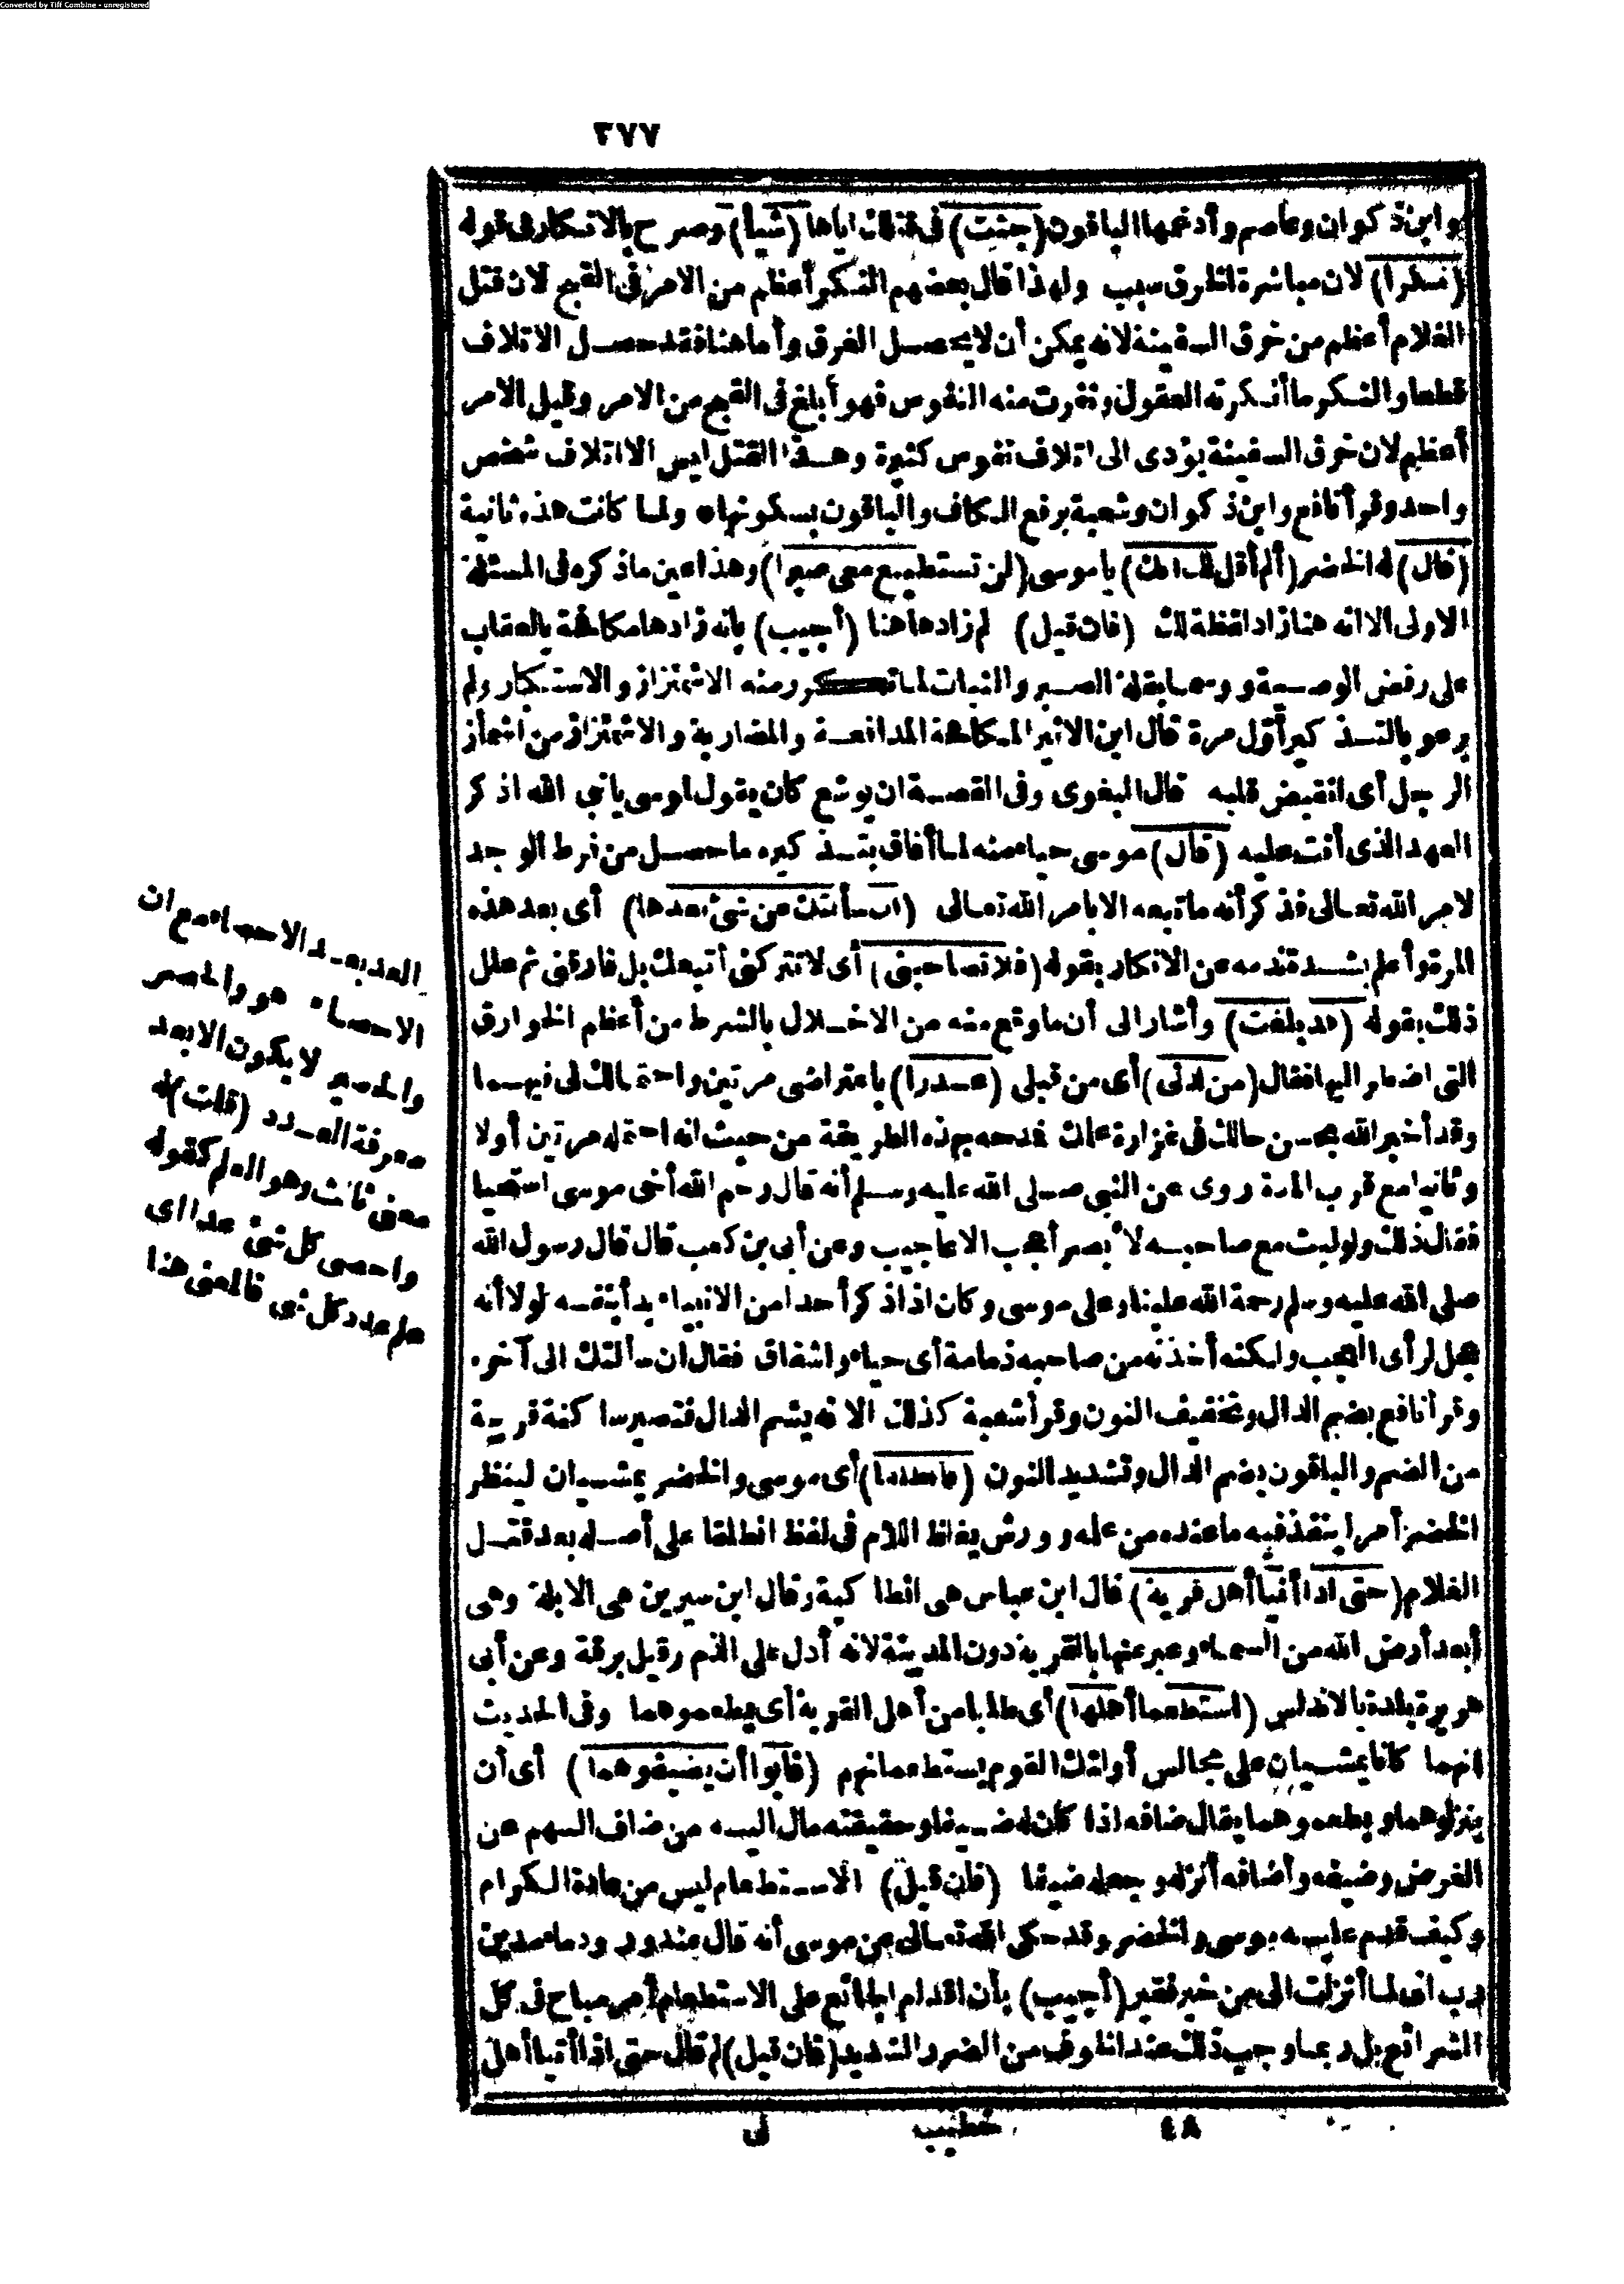 Converted by Tiff Combine - unregistered
٣٧٧
وابن ذكوان وعاصم وأدغمها الباقون (جئت) في قتلك اياها (شيأ) وصرح بالانكار في قوله
(نكرا) لان مباشرة الخرق سبب ولهذا قال بعضهم النكر أعظم من الامر في القبح لان قتل
الغلام أعظم من خرق السفينة لانه يمكن أن لا يحصل الغرق وأما هنا فقد حصل الاتلاف
قطعا والنكر ما أنكرته العقول ونفرت منه النفوس فهو أبلغ في القبح من الامر وقيل الامر
أعظم لان خرق السفينة يؤدى الى اتلاف نفوس كثيرة وهذا القتل ليس الا اتلاف شخص
واحد وقرأ نافع وابن ذكوان وشعبة برفع الكاف والباقون بسكونها * ولما كانت هذه ثانية
(قال) له الخضر (ألم أقل لك انك) يا موسى (لن تستطيع معي صبرا) وهذا عين ما ذكره في المسئلة
الاولى الا انه هنا زاد لفظة لك (فان قيل) لم زادها هنا (أجيب) بانه زادها مكافحة بالعتاب
على رفض الوصية ووسما بقلة الصبر والثبات لما تكرر منه الاشمئزاز والاستنكار ولم
يرعو بالتذكير أول مرة قال ابن الاثير المكافحة المدافعة والمضاربة والاشمئزاز من اشمأز
الرجل أى انقبض قلبه قال البغوى وفى القصة ان يوشع كان يقول لموسى يا نبي الله اذكر
العهد الذى أنت عليه (قال) موسى حياء منه لما أفاق بتذكيره ما حصل من فرط الوجد
لامر الله تعالى فذكر أنه ما تبعه الا بامر الله تعالى (ان سألتك عن شئ بعدها) أى بعد هذه
المرة وأعلم بشدة ندمه عن الانكار بقوله (فلا تصاحبنى) أى لا تتركنى أتبعك بل فارقنى ثم علل
ذلك بقوله (قد بلغت) وأشار الى أن ما وقع منه من الاخلال بالشرط من أعظم الخوارق
التى اضطر اليها فقال (من لدنى) أى من قبلى (عذرا) باعتراضى مرتين واحتمالك لى فيهما
وقد أخبر الله بحسن حالك فى غزارة علمك فمدحه بهذه الطريقة من حيث انه احتمله مرتين أولا
وثانيا مع قرب المدة روى عن النبى صلى الله عليه وسلم أنه قال رحم الله أخى موسى استحيا
فقال ذلك ولو لبث مع صاحبه لابصر أعجب الاعاجيب وعن أبى بن كعب قال قال رسول الله
صلى الله عليه وسلم رحمة الله علينا وعلى موسى وكان اذا ذكر أحدا من الانبياء بدأ بنفسه لولا أنه
عجل لرأى العجب ولكنه أخذته من صاحبه ذمامة أى حياء واشفاق فقال ان سألتك الى آخره
وقرأ نافع بضم الدال وتخفيف النون وقرأ شعبة كذلك الا انه يشم الدال فتصير ساكنة قريبة
من الضم والباقون بضم الدال وتشديد النون (فانطلقا) أى موسى والخضر يمشيان لينظر
الخضر أمرا ينفذ فيه ما عنده من علمه وورش يغلظ اللام فى لفظ انطلقا على أصله بعد قتل
الغلام (حتى اذا أتيا أهل قرية) قال ابن عباس هى انطاكية وقال ابن سيرين هى الابلة وهى
أبعد أرض الله من السماء وعبر عنها بالقرية دون المدينة لانه أدل على الذم وقيل برقة وعن أبى
هريرة بلدة بالاندلس (استطعما أهلها) أى طلبا من أهل القرية أى يطعموهما وفى الحديث
انهما كانا يمشيان على مجالس أولئك القوم يستطعمانهم (فأبوا أن يضيفوهما) أى أن
ينزلوهما ويطعموهما يقال ضافه اذا كان له ضيفا وحقيقته مال اليه من ضاف السهم عن
الغرض وضيفه وأضافه أنزله وجعله ضيفا (فان قيل) الاستطعام ليس من عادة الكرام
وكيف قدم عليه موسى والخضر وقد حكى الله تعالى عن موسى أنه قال عند ورود ماء مدين
رب انى لما أنزلت الى من خير فقير (أجيب) بأن اقدام الجائع على الاستطعام أمر مباح فى كل
الشرائع بل ربما وجب ذلك عند الخوف من الضرر الشديد (فان قيل) لم قال حتى اذا أتيا أهل
٤٨ خطيب نى
العد بعد الاحصاء مع ان
الاحصاء هو والحصر
والحصر لا يكون الا بعد
معرفة العدد (قلت) له
معنى ثالث وهو العلم كقوله
واحصى كل شئ عددا اى
علم عدد كل شئ فالمعنى هنا